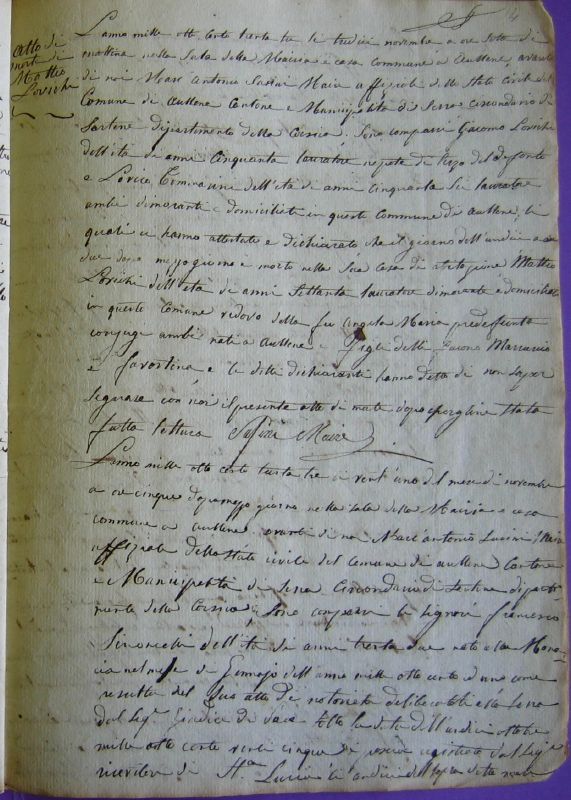 4
Atto di
morte di
Matteo
Lovichi
L'anno mille otto cento trenta tre li tredici novembre a ore sette di
mattina nella Sala della Mairia e casa commune a Aullene, avanti
di noi Marc Antonio Maire affiziale dello Stato Civile del
Comune di Aullene Cantone e Municipalità di Serra circondario di
Sartene dipartimento della Corsica, Sono comparsi Giacomo Lovichi
dell'età di anni Cinquanta lauratore nepote di terzo del defonto
e dell'età di anni cinquanta sei lauratore
ambi dimoranti e domiciliati in questo commune di Aullene, li
quali ci hanno attestato e dichiarato che il giorno dell'undici a ore
due dopo mezzo giorno è morto nella Sua Casa di abitazione Matteo
Lovichi dell'età di anni Settanta lauratore dimorante e domiciliato
in questo Comune vedovo della fu Angela Maria predefunta
conjugi ambi nati a Aullene e figli delli
e e li detti dichiaranti hanno detto di non saper
segnare con noi il presente atto di morte dopo stata
fatta lettura Maire
L'anno mille otto cento trenta tre a vent'uno del mese di novembre
a ore cinque dopo mezzo giorno nella Sala della Mairia e casa
commune a Aullene avanti di noi Marc'antonio Maire
affiziale dello Stato civile del Comune di Aullene Cantone
e Municipalità di Serra Circondario di Sartene diparti
mento della Corsica, Sono comparsi li Signori Francesco
dell'età di anni trenta due nato alla Mona
cia nel mese di Gennajo dell'anno mille otto cento d'uno come
resulta del Suo atto di notorietà a Serra
dal Sigr Giudice di Pace Sotto la data dell'undici ottobre
mille otto cento venti cinque di poscia dal Sigr
ricevitore di Sta Lucia li undici dell'